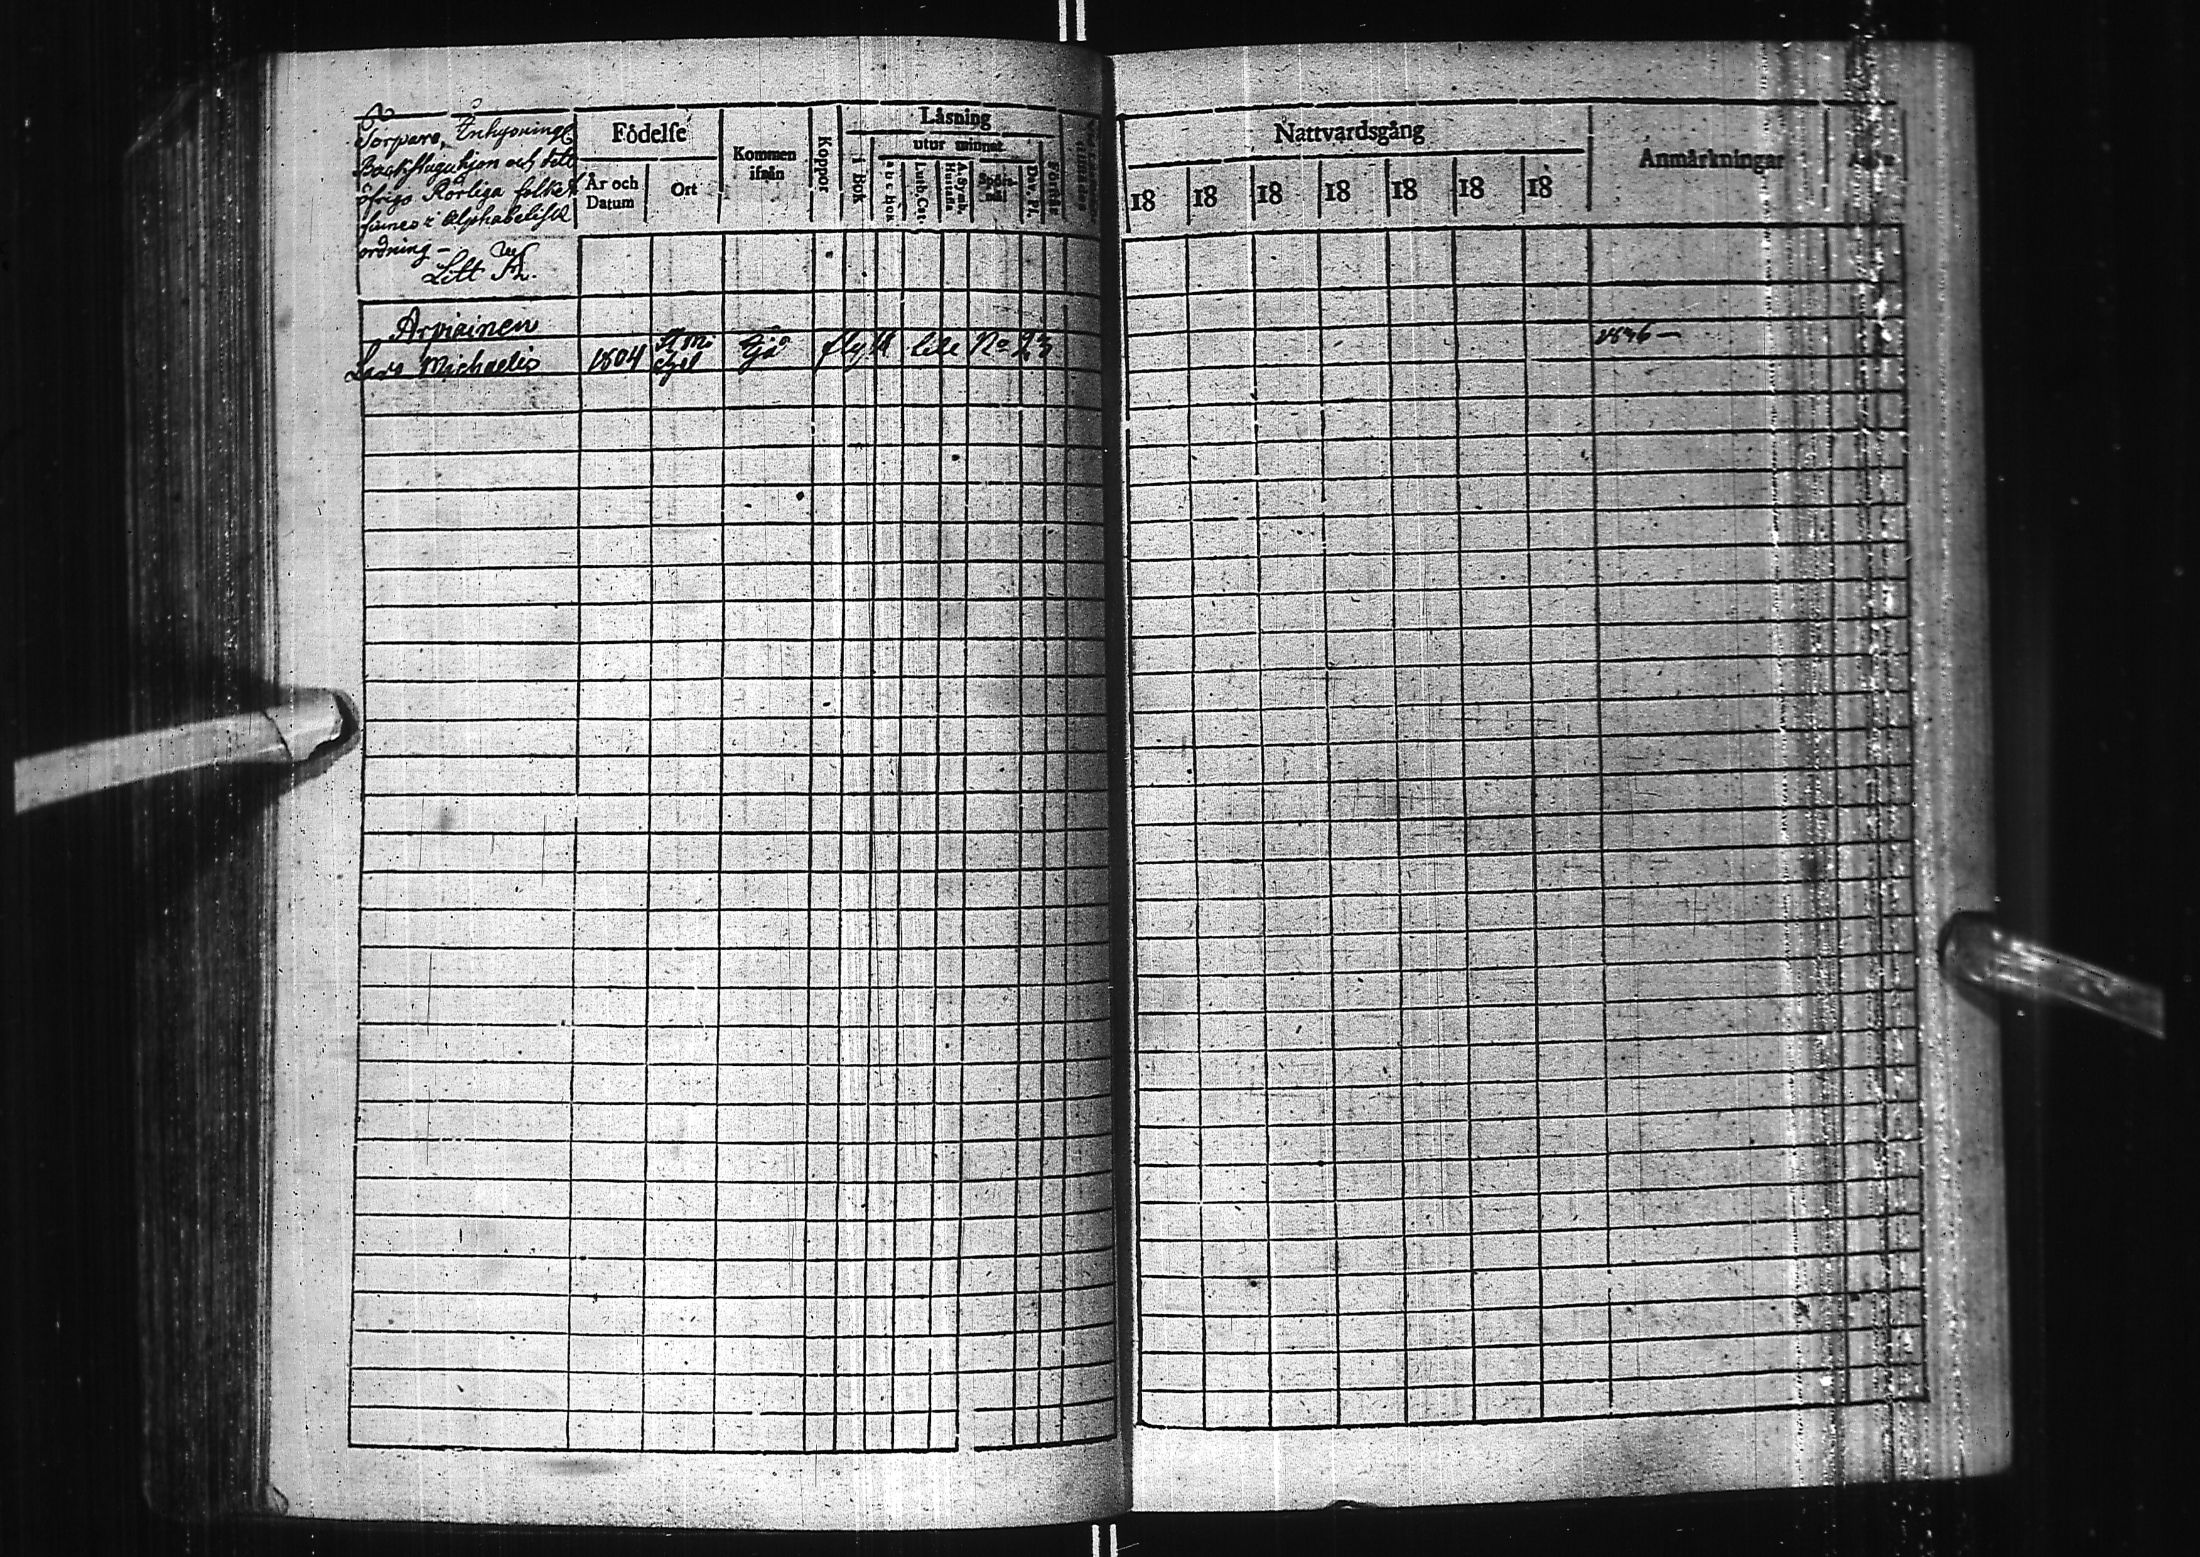 Torpare, Inhysninge
Backstuguhjon och dett
öfriga Rörliga folket
finnes i Alphabetisk
ordning –
Litt
Födelse
År och Datum
Ort
Kommen ifrån
Koppor
Läsning
i Bok
utur minnet
a b c bok
Luth. Cat.
A. Symb.
Hustafla
Spörsmål
Dav. Ps.
Förstår
Nattvardsgång
18 18 18 18 18 18 18
Anmärkningar
Arpiainen
Lars Michaelis 1804 flytt till No 23 1836 –